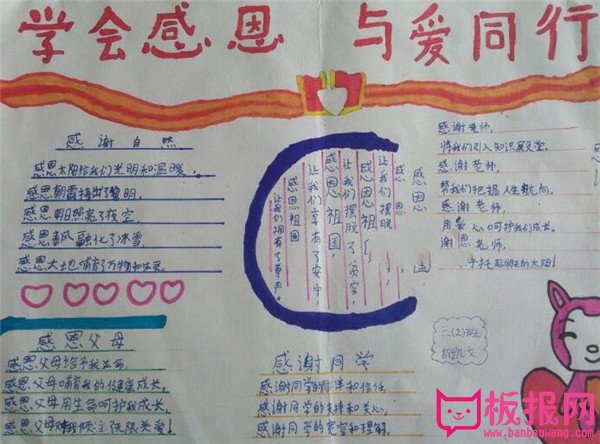 学会感恩 与爱同行
感谢自然
感恩太阳给我们光明和温暖,
感恩朝霞捧出了黎明,
感恩朝日照亮了夜空
感恩春风融化了冰雪,
感恩大地哺育了万物和生灵。
感恩父母
感恩父母给予我生命,
感恩父母哺育我的健康成长,
感恩父母用生命呵护我成长,
感恩父母对我倾注无限关爱!
感恩
感恩
让我们摆脱
感恩祖国,
让我们摆脱了贫穷,
感恩祖国,
让我们享有了安宁,
感恩祖国
让我们拥有了尊严。
感谢老师,
将我们引入知识殿堂。
感谢老师,
帮我们把握人生航向。
感谢老师,
用爱心呵护我们成长。
谢恩老师,
手托起明天的太阳!
三(2)班
感谢同学
感谢同学的信任,
感谢同学的支持和关心,
感谢同学的宽容和理解,
板报网
www.banbaowang.com